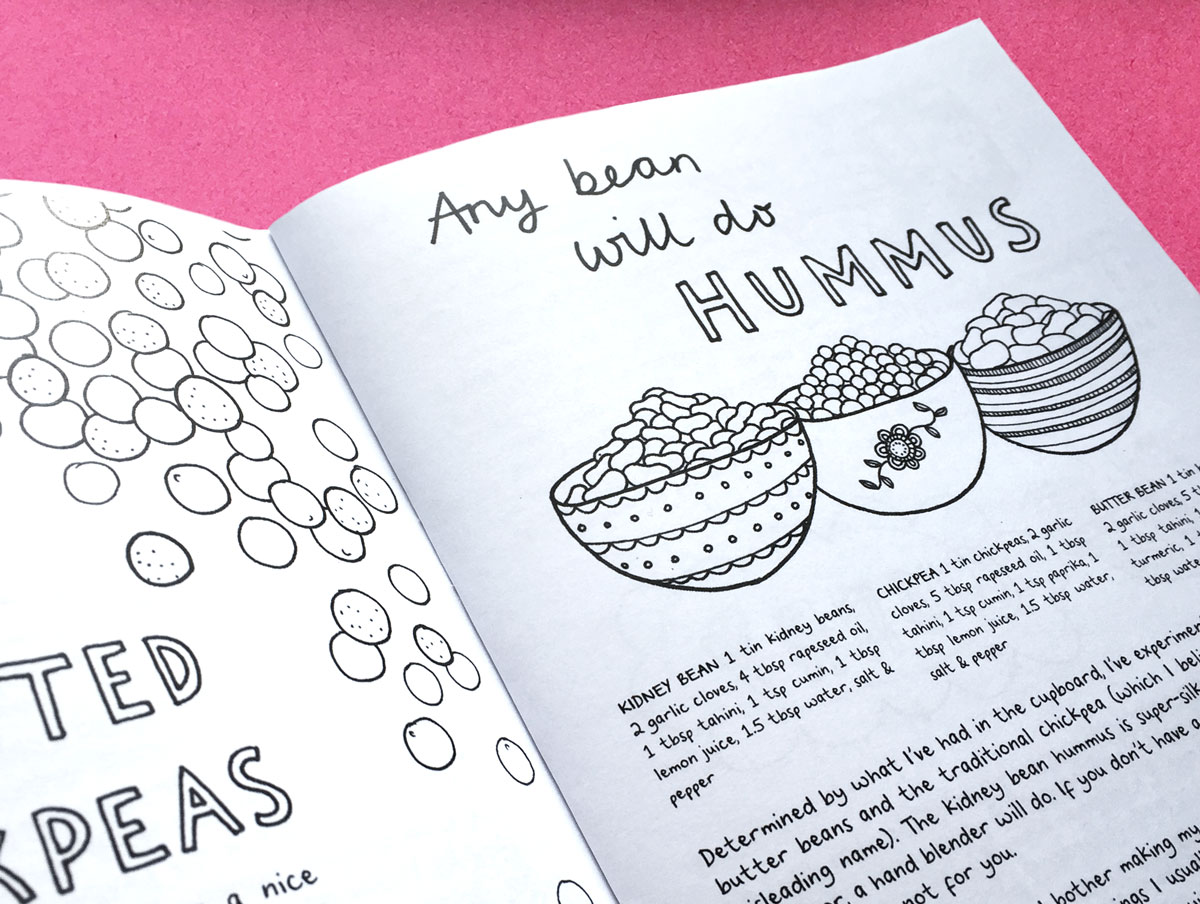 TED
KPEAS
a nice
Any bean
will do
HUMMUS
KIDNEY BEAN 1 tin kidney beans,
2 garlic cloves, 4 tbsp rapeseed oil,
1 tbsp tahini, 1 tsp cumin, 1 tbsp
lemon juice, 1.5 tbsp water, salt &
pepper
CHICKPEA 1 tin chickpeas, 2 garlic
cloves, 5 tbsp rapeseed oil, 1 tbsp
tahini, 1 tsp cumin, 1 tsp paprika, 1
tbsp lemon juice, 1.5 tbsp water,
salt & pepper
BUTTER BEAN 1 tin
2 garlic cloves, 5
1 tbsp tahini, 1
turmeric, 1
tbsp
Determined by what I've had in the cupboard, I've
butter beans and the traditional chickpea (which I
name). The kidney bean hummus is
a hand blender will do. If you don't have a
not for you.
bother making my
I